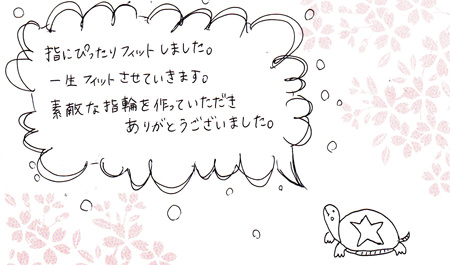 指にぴったりフィットしました。
一生フィットさせていきます。
素敵な指輪を作っていただき
ありがとうございました。